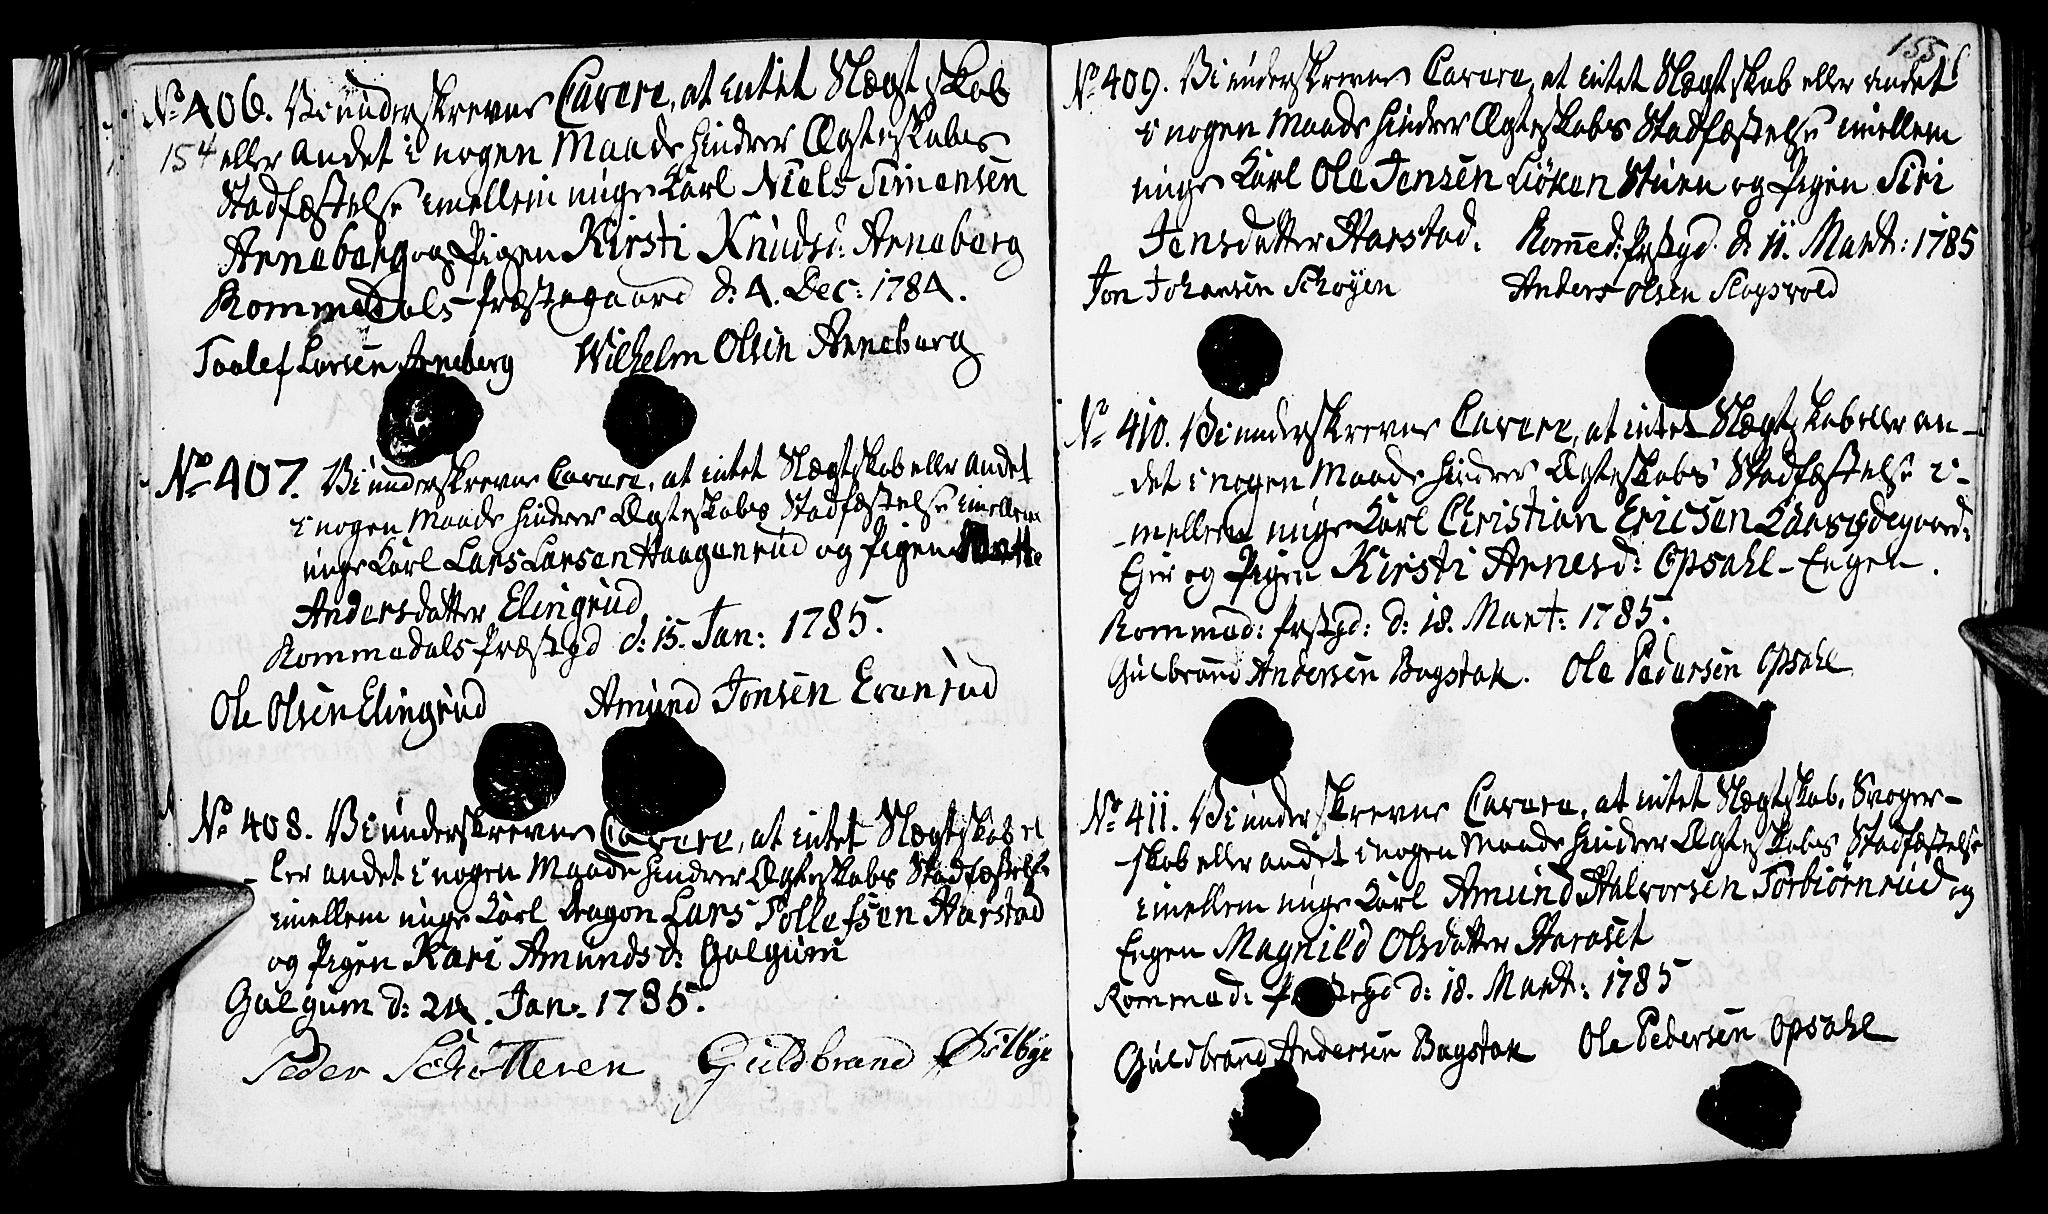 No 406. Vi underskrevne Cavere, at intet Slægtskab
154 eller andet i nogen Maade hindrer Ægteskabs
Stadfæstelse imellem unge Karl Niels Simensen
Arneberg og Pigen Kirsti Knudsd: Arneberg
Rommedals Præstegaard d: 4. Dec: 1784.
Toolef Larsen Arneberg Wilhelm Olsen Arneberg
No 407. Vi underskrevne Cavere, at intet Slægtskab eller andet
i nogen Maade hindrer Ægteskabs Stadfæstelse imellem
unge Karl Lars Larsen Haagenrud og Pigen
Andersdatter Elingrud
Rommedals Præstgd d: 15. Jan: 1785.
Ole Olsen Elingrud Amund Jonsen Evenrud
No 408. Vi underskrevne Cavere, at intet Slægtskab el
ler andet i nogen Maade hindrer Ægteskabs Stadfæstelse
imellem unge Karl Dragon Lars Tollefsen Harstad
og Pigen Kari Amundsd: Galgum
Galgum d: 24. Jan: 1785.
Peder Schøtteren Guldbrand Østbye
155
No 409. Vi underskrevne Cavere, at intet Slægtskab eller andet
i nogen Maade hindrer Ægteskabs Stadfæstelse imellem
unge Karl Ole Jensen Løken Stuen og Pigen Siri
Jensdatter Harstad. Rommed: Præstgd. d: 11. Mart: 1785
Jon Johansen Schøyen Anders Olsen Slogsvold
No 410. Vi underskrevne Cavere, at intet Slægtskab eller an-
det i nogen Maade hindrer Ægteskabs Stadfæstelse i-
mellem unge Karl Christian Ericsen
Eier og Pigen Kirsti Arnesd: Opsahl-Engen.
Rommed: Prstgd: d: 18. Mart: 1785.
Gulbrand Andersen Bagstak. Ole Pedersen Opsahl
No 411. Vi underskrevne Cavere, at intet Slægtskab, Svoger-
skab eller andet i nogen Maade hindrer Ægteskabs Stadfæstelse
imellem unge Karl Amund Halvorsen Torbiørnrud og
Engen Magnild Olsdatter Haraset
Rommed: d: 18. Mart: 1785
Guldbrand Andersen Bagstak Ole Pedersen Opsahl